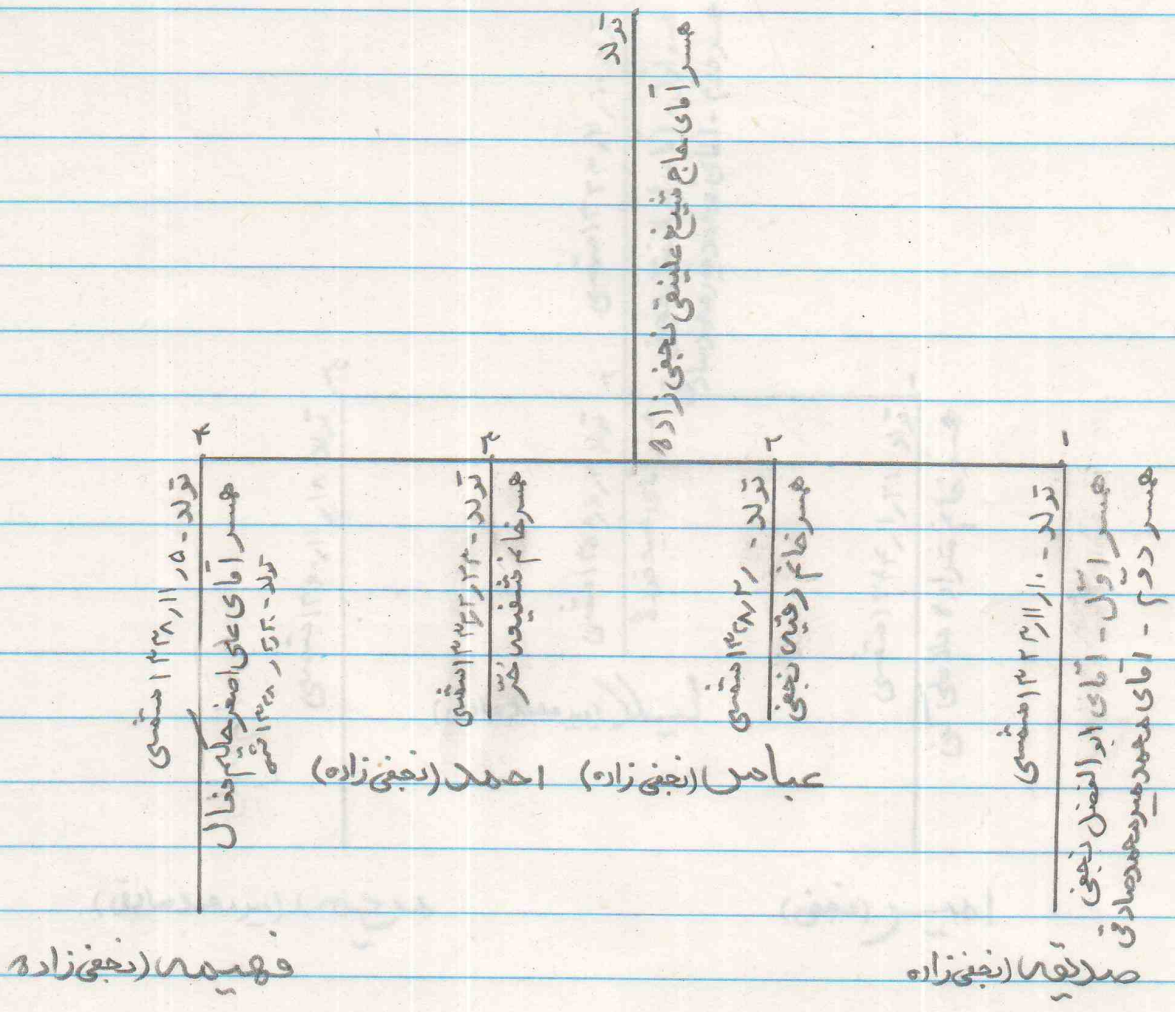 تولد
همسر آقای حاج شیخ علینقی نجفی زاده
۱-
تولد - ۱۳۲۳٫۱۱٫۱۰ شمسی
همسر اوّل - آقای ابوالفضل نجفی
همسر دوّم - آقای محمد میرمحمدصادقی
صدیقه (نجفی زاده
۲-
تولد - ۱۳۲۸٫۲٫ شمسی
همسر خانم رقیه نجفی
عباس (نجفی زاده)
۳-
تولد - شمسی
همسر خانم شفیعه حُرّ
احمد (نجفی زاده)
۴-
تولد - ۱۳۳۸٫۱۱٫۵ شمسی
همسر آقای علی اصغر حکیم فعال
تولد -
فهیمه (نجفی زاده